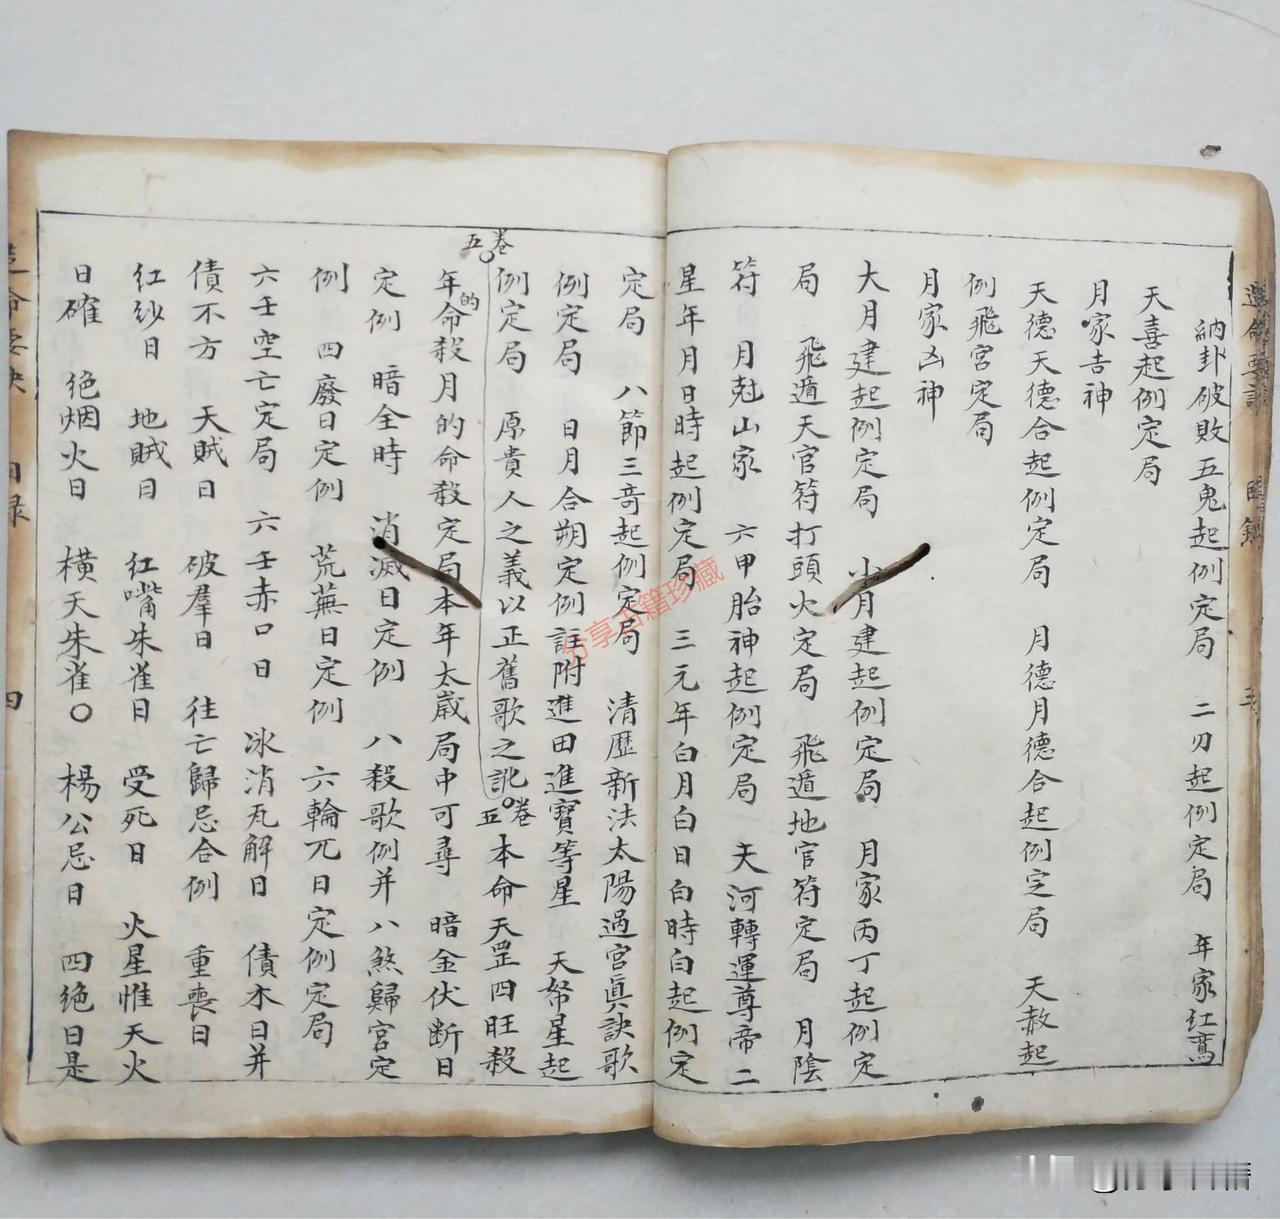 納卦破敗五鬼起例定局 二刃起例定局 年家紅鸞
天喜起例定局
月家吉神
天德天德合起例定局 月德月德合起例定局 天赦起
例飛宮定局
月家凶神
大月建起例定局 小月建起例定局 月家丙丁起例定
局 飛遁天官符打頭火定局 飛遁地官符定局 月陰
符 月尅山家 六甲胎神起例定局 天河轉運尊帝二
星年月日時起例定局 三元年白月白日白時白起例定
定局 八節三奇起例定局 清歷新法太陽過宮眞訣歌
例定局 日月合朔定例註附進田進寶等星 天帑星起
卷五
例定局 原貴人之義以正舊歌之訛 卷五 本命天罡四旺殺
年的命殺月的命殺定局本年太歲局中可尋 暗金伏断日
定例 暗全時 消滅日定例 八殺歌例并八煞歸宮定
例 四廢日定例 荒蕪日定例 六輪兀日定例定局
六壬空亡定局 六壬赤口日 冰消瓦解日 債木日并
債不方 天賊日 破羣日 往亡歸忌合例 重喪日
紅紗日 地賊日 紅嘴朱雀日 受死日 火星惟天火
日確 绝烟火日 横天朱雀〇 楊公忌日 四绝日是
造命要訣 目録 四
分享古籍珍藏